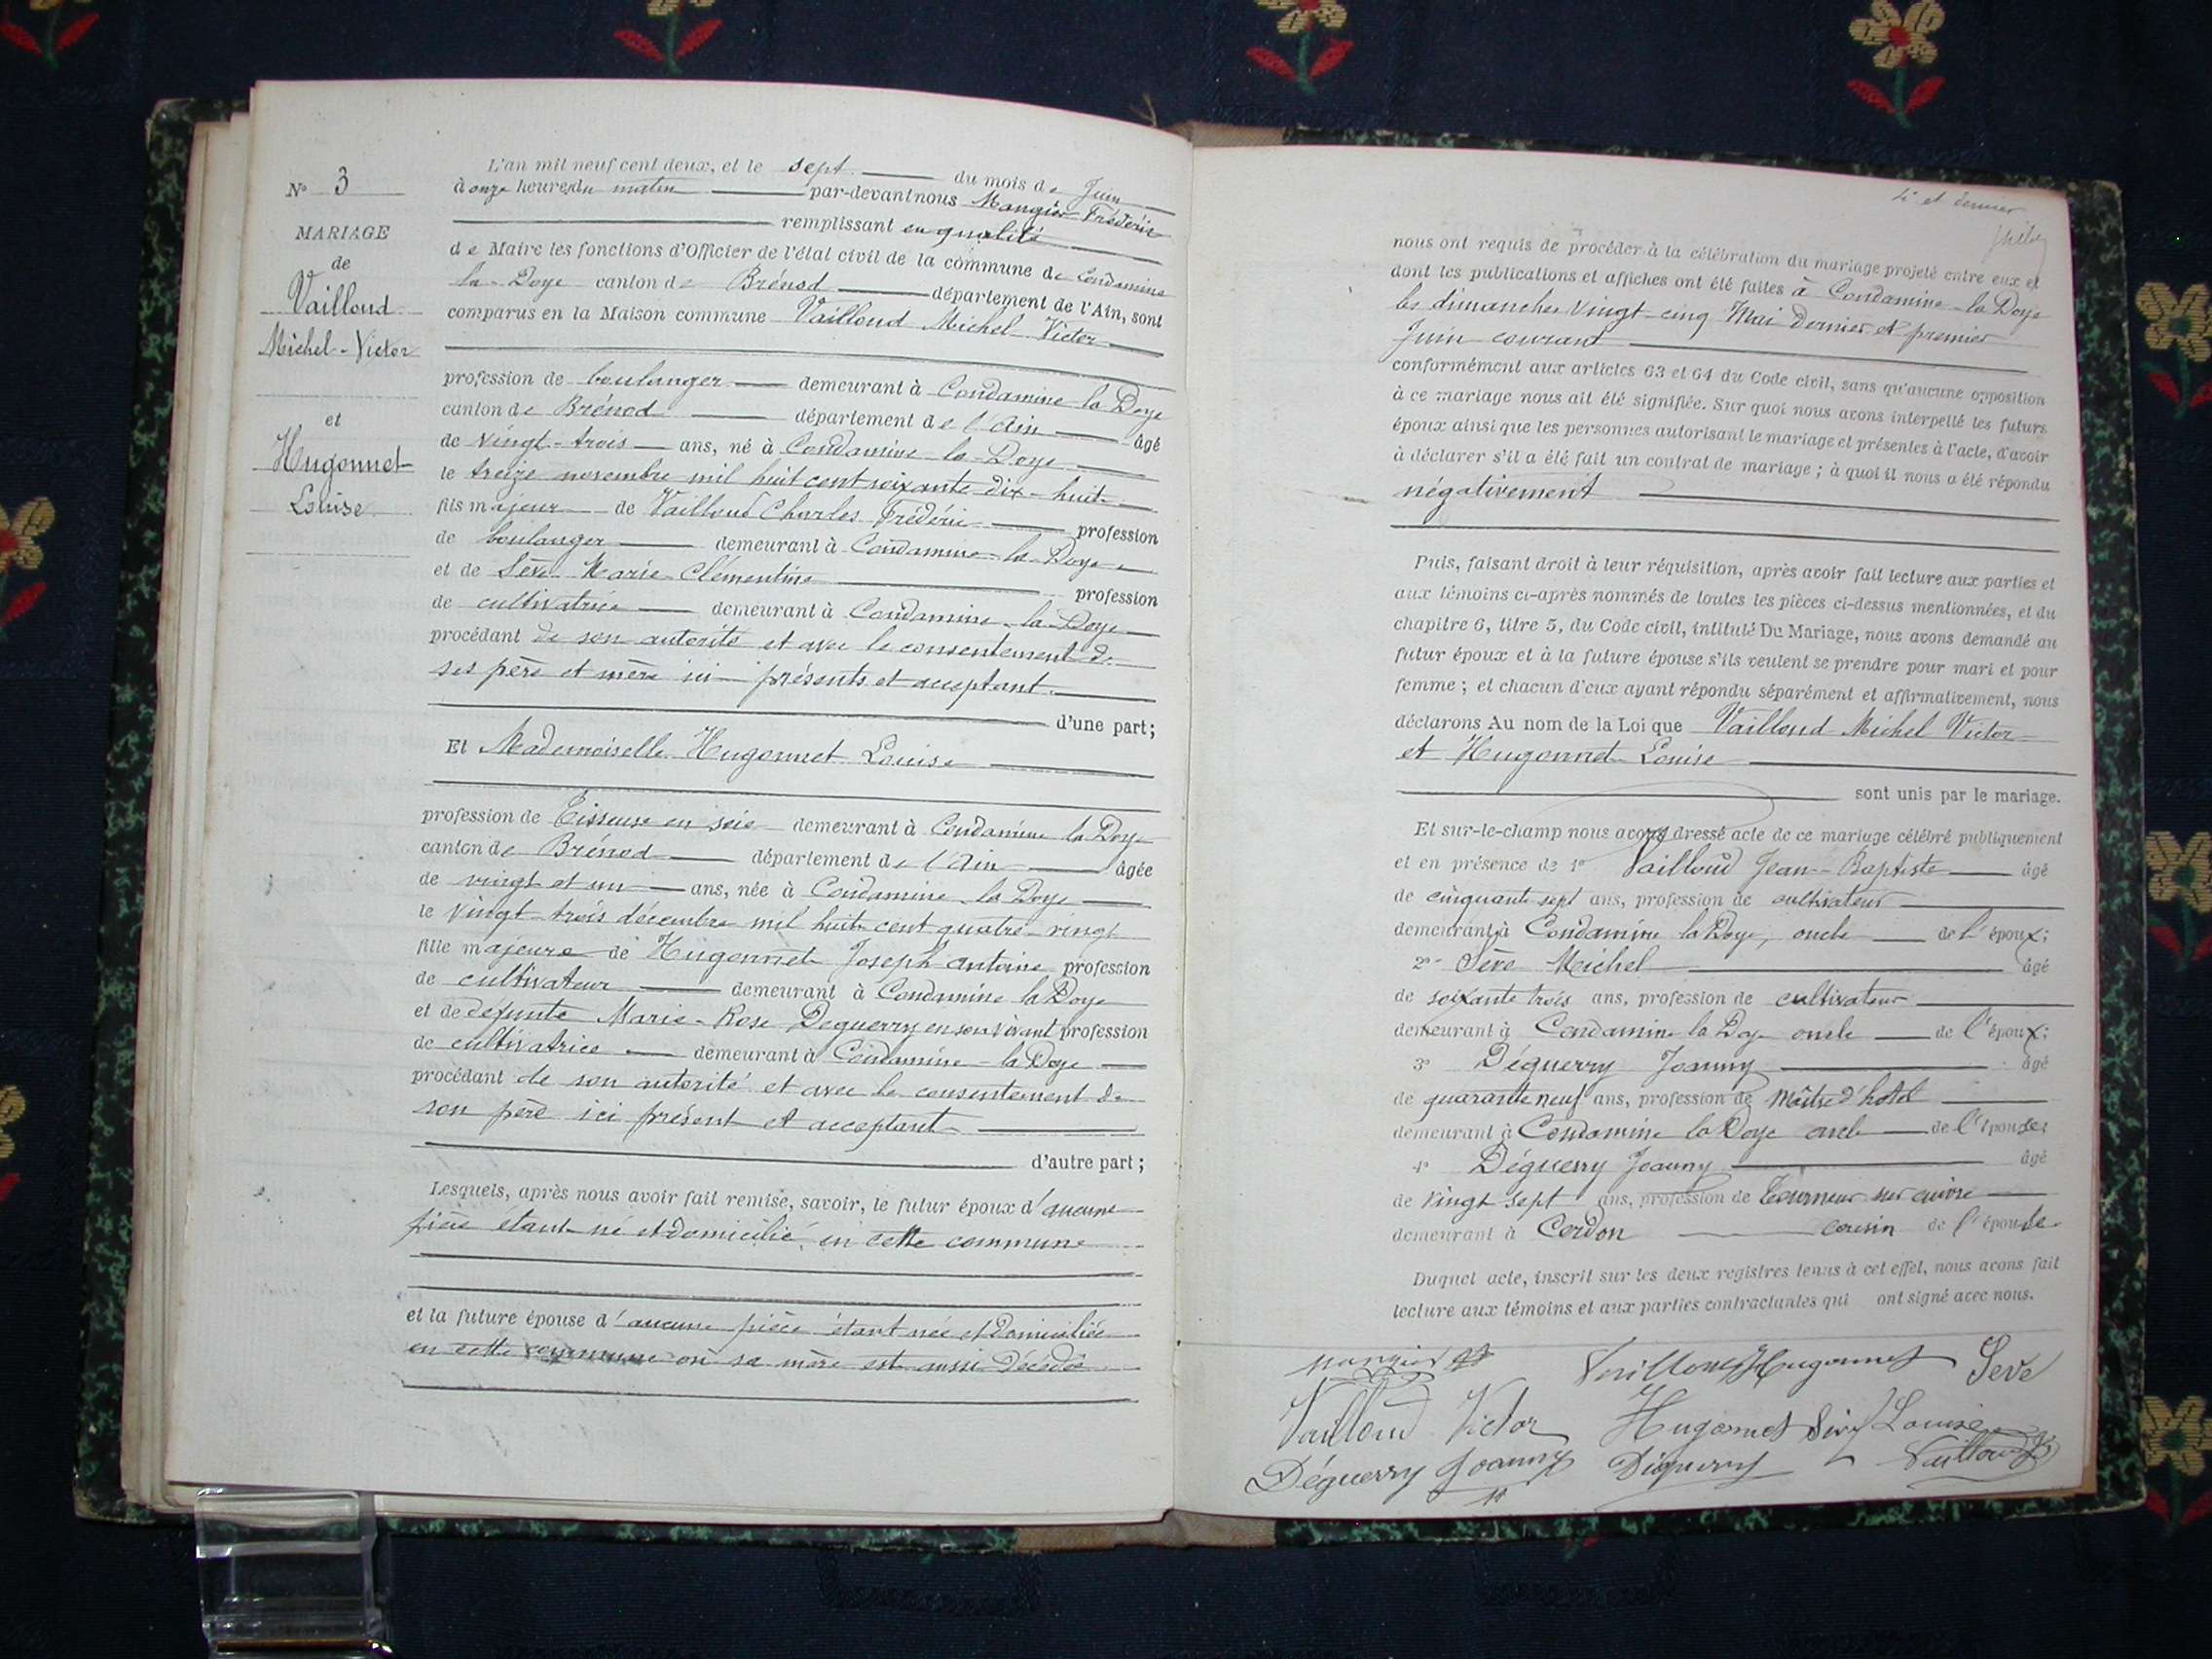 N° 3
MARIAGE
de
Vailloud
Michel-Victor
et
Hugonnet
Louise
L'an mil neuf cent deux, et le sept du mois de Juin
à onze heures du matin par-devant nous Mangier Frédéric
remplissant en qualité
de Maire les fonctions d'Officier de l'état civil de la commune de Condamine
la Doye canton de Brénod département de l'Ain, sont
comparus en la Maison commune Vailloud Michel Victor
profession de boulanger demeurant à Condamine la Doye
canton de Brénod département de l'Ain âgé
de vingt-trois ans, né à Condamine la Doye
le treize novembre mil huit cent soixante dix-huit
fils majeur de Vailloud Charles Frédéric profession
de boulanger demeurant à Condamine la Doye
et de Sève Marie Clémentine profession
de cultivatrice demeurant à Condamine la Doye
procédant de son autorité et avec le consentement de
ses père et mère ici présents et acceptant
d'une part;
Et Mademoiselle Hugonnet Louise
profession de Tisseuse en soie demeurant à Condamine la Doye
canton de Brénod département de l'Ain âgée
de vingt et un ans, née à Condamine la Doye
le vingt trois décembre mil huit cent quatre-vingt
fille majeure de Hugonnet Joseph Antoine profession
de cultivateur demeurant à Condamine la Doye
et de défunte Marie-Rose Deguerry en son vivant profession
de cultivatrice demeurant à Condamine-la Doye
procédant de son autorité et avec le consentement de
son père ici présent et acceptant
d'autre part;
Lesquels, après nous avoir fait remise, savoir, le futur époux d'aucune
pièce étant né et domicilié en cette commune
et la future épouse d'aucune pièce étant née et domiciliée
en cette commune où sa mère est aussi décédée
4e et dernier
nous ont requis de procéder à la célébration du mariage projeté entre eux et
dont les publications et affiches ont été faites à Condamine-la Doye
les dimanches vingt-cinq Mai dernier et premier
Juin courant
conformément aux articles 63 et 64 du Code civil, sans qu'aucune opposition
à ce mariage nous ait été signifiée. Sur quoi nous avons interpellé les futurs
époux ainsi que les personnes autorisant le mariage et présentes à l'acte, d'avoir
à déclarer s'il a été fait un contrat de mariage ; à quoi il nous a été répondu
négativement
Puis, faisant droit à leur réquisition, après avoir fait lecture aux parties et
aux témoins ci-après nommés de toutes les pièces ci-dessus mentionnées, et du
chapitre 6, titre 5, du Code civil, intitulé Du Mariage, nous avons demandé au
futur époux et à la future épouse s'ils veulent se prendre pour mari et pour
femme ; et chacun d'eux ayant répondu séparément et affirmativement, nous
déclarons Au nom de la Loi que Vailloud Michel Victor
et Hugonnet Louise
sont unis par le mariage.
Et sur-le-champ nous avons dressé acte de ce mariage célébré publiquement
et en présence de 1° Vailloud Jean-Baptiste âgé
de cinquante sept ans, profession de cultivateur
demeurant à Condamine la Doye, oncle de l'époux;
2° Sève Michel âgé
de soixante trois ans, profession de cultivateur
demeurant à Condamine la Doye oncle de l'époux;
3° Déguerry Joanny âgé
de quarante neuf ans, profession de Maître d'hôtel
demeurant à Condamine la Doye oncle de l'épouse;
4° Déguerry Joanny âgé
de vingt sept ans, profession de Tourneur sur cuivre
demeurant à Cerdon cousin de l'épouse
Duquel acte, inscrit sur les deux registres tenus à cet effet, nous avons fait
lecture aux témoins et aux parties contractantes qui ont signé avec nous.
Mangier Vailloud Hugonnet Seve
Vailloud Victor Hugonnet Louise
Déguerry Joanny Déguerry Vailloud